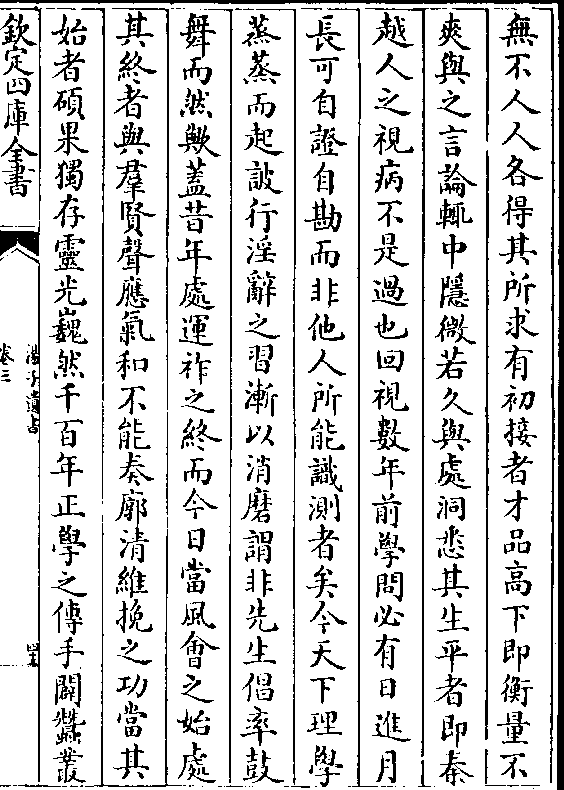 無不人人各得其所求有初接者才品高下即衡量不
爽與之言論輒中隱微若久與處洞悉其生平者即秦
越人之視病不是過也回視數年前學問必有日進月
長可自證自勘而非他人所能識測者矣今天下理學
蒸蒸而起詖行淫辭之習漸以消磨謂非先生倡率鼓
舞而然歟蓋昔年處運祚之終而今日當風會之始處
其終者與羣賢聲應氣和不能奏廓清維挽之功當其
始者碩果獨存靈光巍然千百年正學之傳手闢蠶叢
欽定四庫全書
湯子遺書
卷三